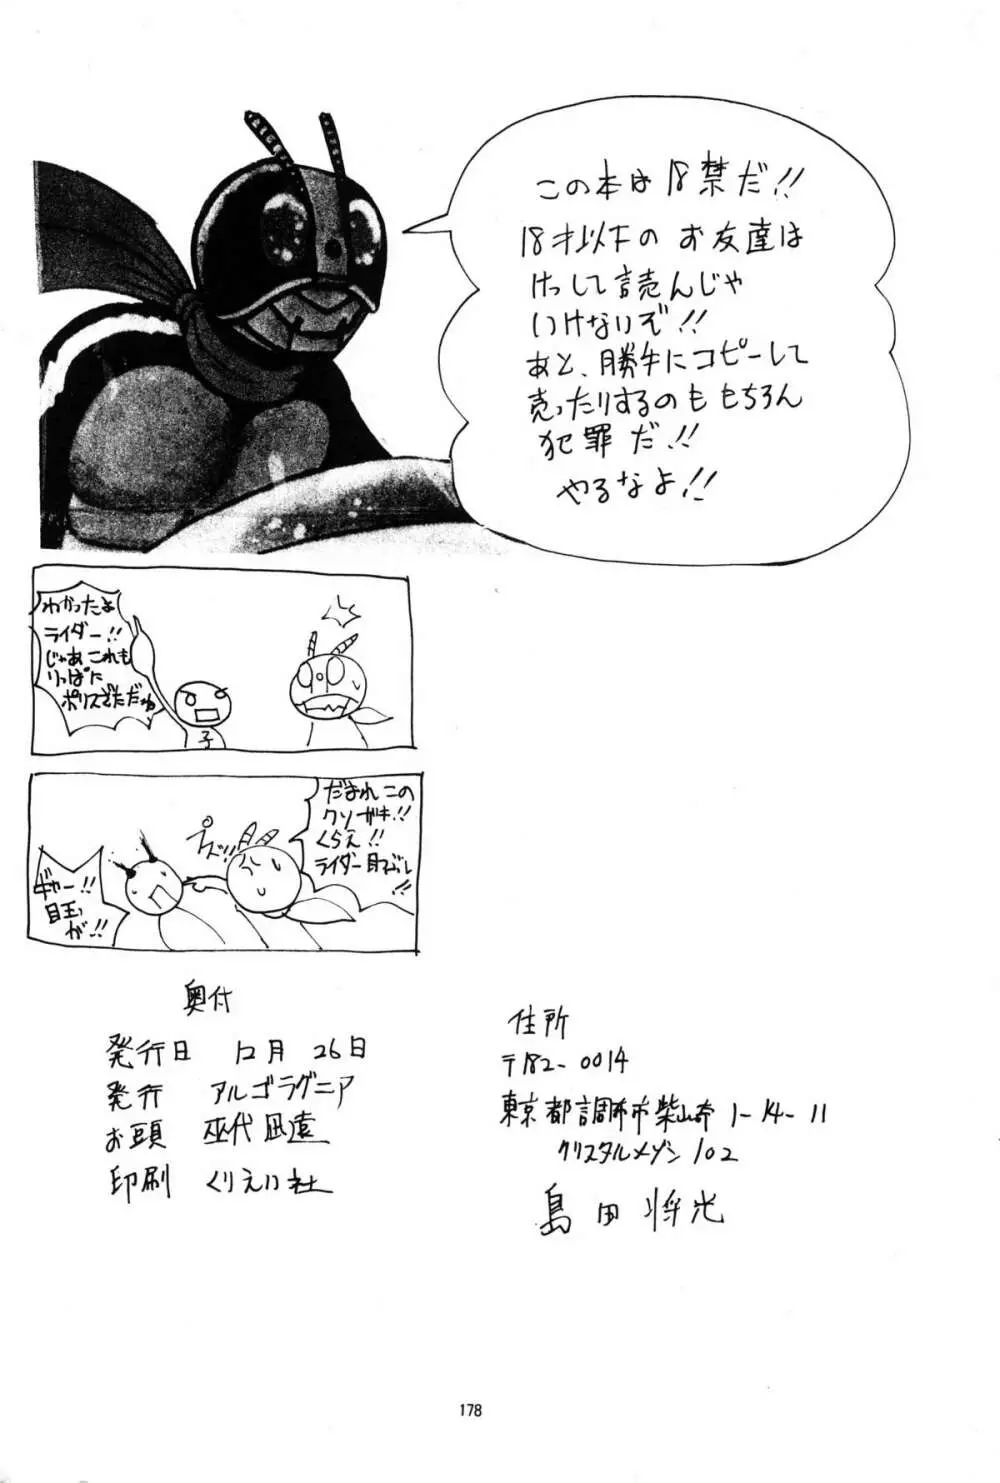 この本は18禁だ!!
18才以下のお友達は
けっして読んじゃ
いけないぞ!!
あと、勝手にコピーして
売ったりするのももちろん
犯罪だ!!
やるなよ!!
わかったよ
ライダー!!
じゃあこれも
りっぱに
ポリスざただね
子
だまれこの
クソガキ!!
くらえ!!
ライダー目つぶし
ブズッ!!
ギャー!!
目玉
が!!
奥付
発行日 12月26日
発行 アルゴラグニア
お頭 巫代凪遠
印刷 くりえい社
住所
〒182-0014
東京都調布市柴崎1-14-11
クリスタルメゾン102
島田将光
178